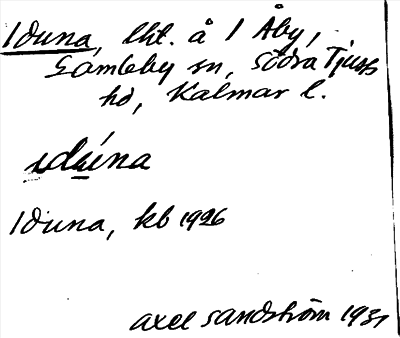 Iduna, lht. å 1 Åby,
Gamleby sn, Södra Tjusts
hd, Kalmar l.
idúna
Iduna, kb 1926
Axel Sandström 1931